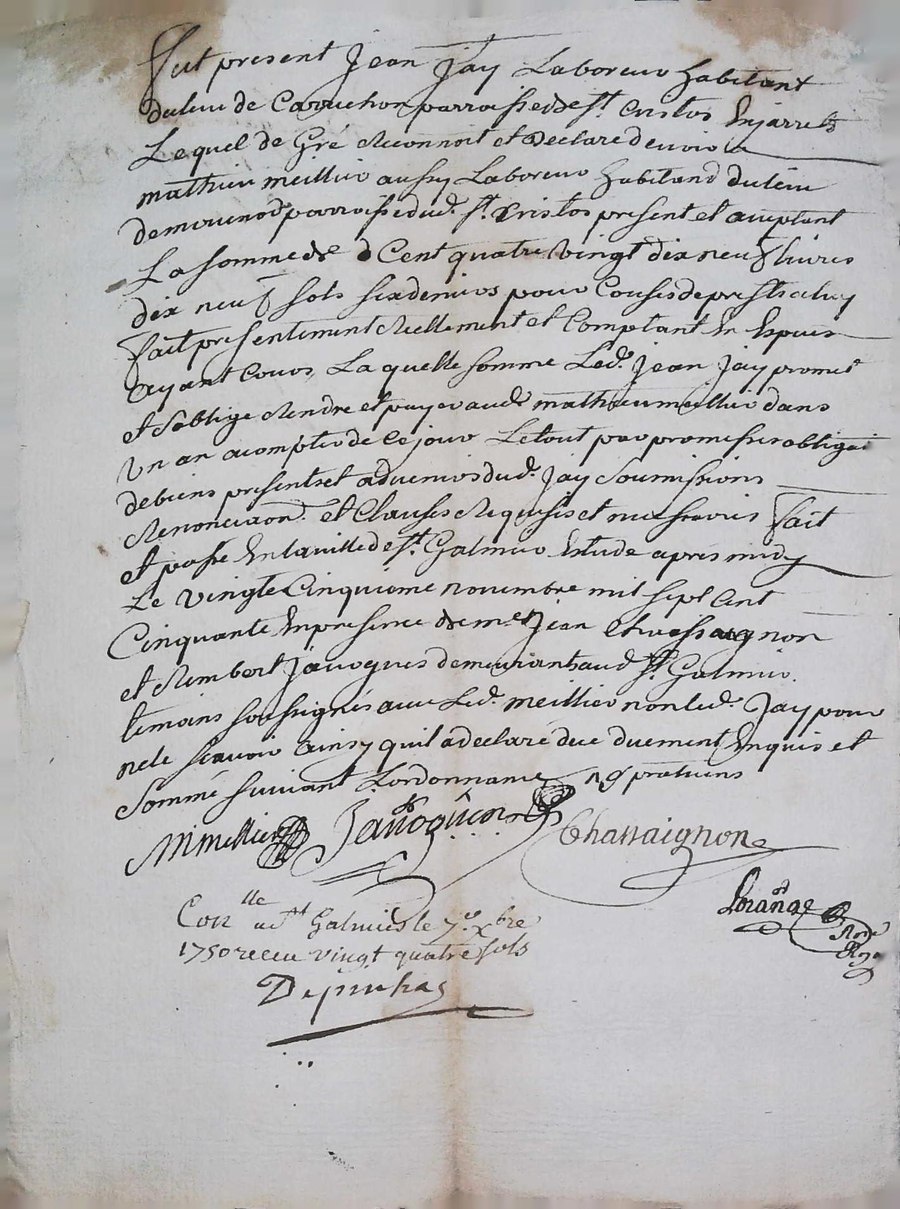 fut present Jean Jay Laboreur habitant
du lieu de Caruchon parroisse de st. Cristos En jarrets
Lequel de Gré Reconnoit et declare devoir a
mathieu meillier aussy Laboreur habitand du lieu
de parroisse dud. st. Cristos present et aceptant
La somme de Cent quatre vingt dix neuf livres
dix neuf sols six deniers pour Causes de prest a luy
fait presentement Reellement et Comptant En Espèces
ayant Cours, La quelle somme Led. Jean Jay promet
et s'oblige Rendre et payer aud. mathieu meillier dans
un an a compter de ce jour Le tout par promesses obligaõn
de biens presents et advenirs dud. Jay Soumissions
Renonciaõn. et Clauses Requises et necessaires fait
et passé En la ville de st. Galmier Estude apres midy
Le vingt Cinquieme novembre mil sept Cent
Cinquante En presence de me. Jean Chassaignon
et Rimbert Javogues demeurants aud. st. Galmier.
temoins soussignés avec Led. meillier non led. Jay pour
ne le scavoir ainsy quil a declaré de ce duement Enquis et
sommé suivant L'ordonnance praticiens
M meillier Javogues Chassaignon
Lorange
Conlle a st Galmier le 7e. xbre
1750 receu vingt quatre sols